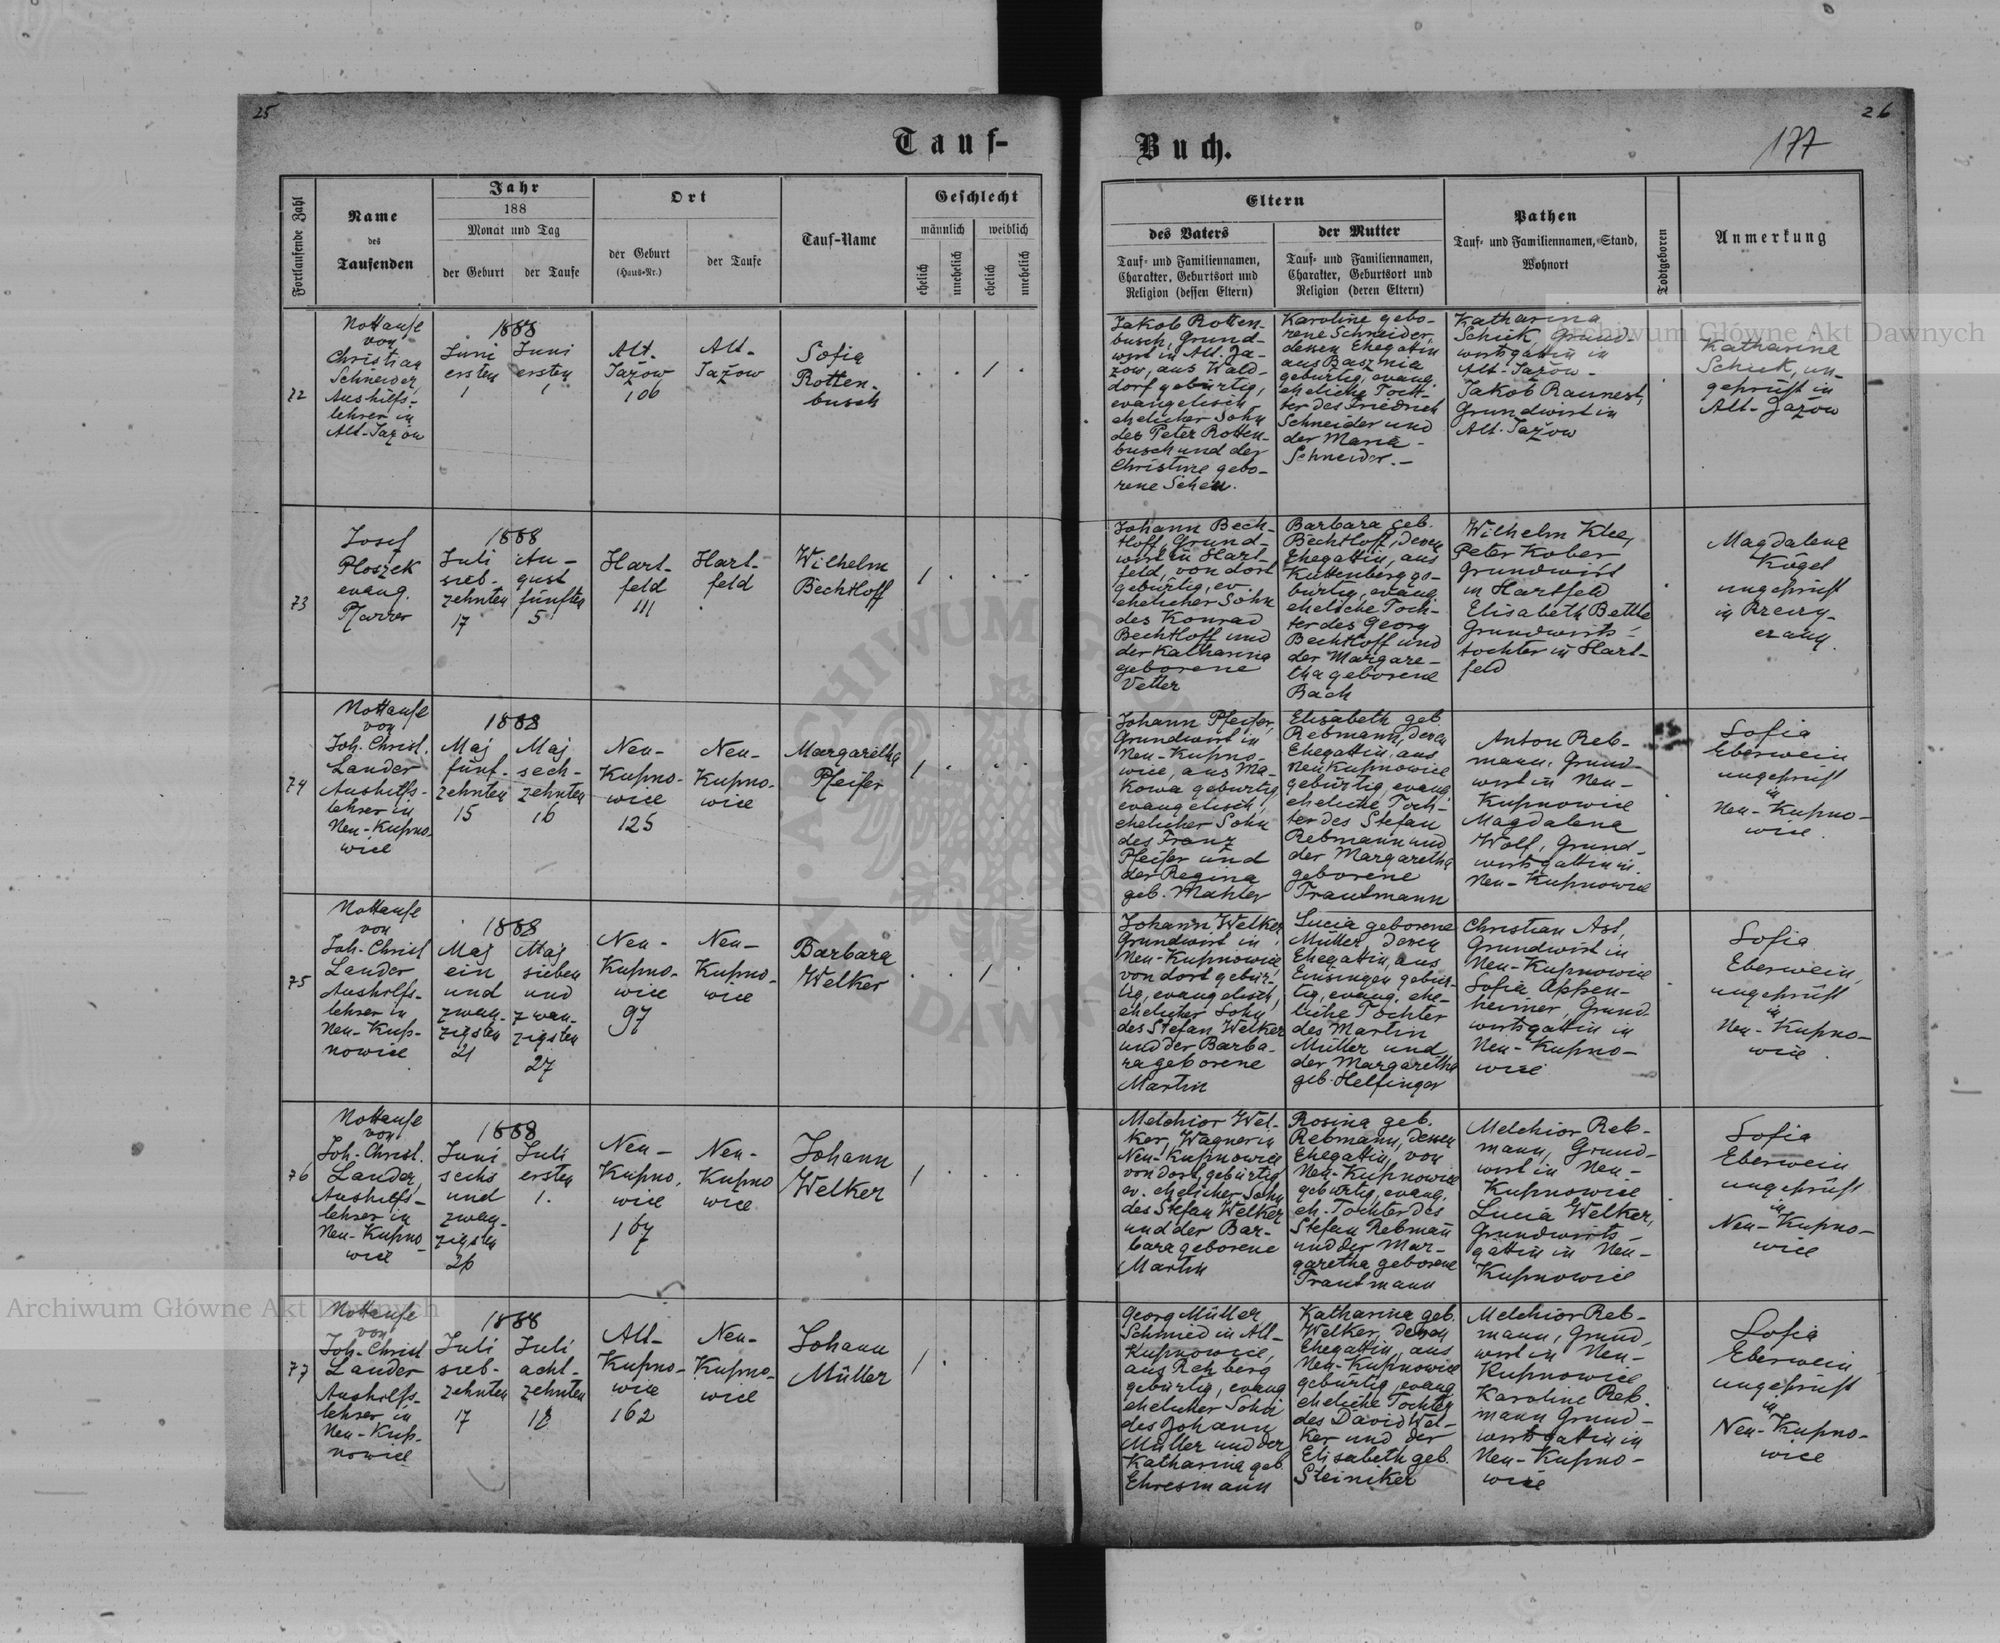 25
26
177
Tauf-
Buch.
Fortlaufende Zahl
Name
des
Taufenden
Jahr
188
Monat und Tag
der Geburt
der Taufe
Ort
der Geburt
(Haus-Nr.)
der Taufe
Tauf-Name
Geschlecht
männlich
weiblich
ehelich
unehelich
ehelich
unehelich
Eltern
des Vaters
Tauf- und Familiennamen,
Charakter, Geburtsort und
Religion (dessen Eltern)
der Mutter
Tauf- und Familiennamen,
Charakter, Geburtsort und
Religion (deren Eltern)
Pathen
Tauf- und Familiennamen, Stand,
Wohnort
Todtgeboren
Anmerkung
72
Nottaufe
von
Christian
Schneider,
Aushilfs-
lehrer in
Alt-Jažow
1888
Juni
ersten
1
Juni
ersten
1
Alt-
Jazow
106
Alt-
Jažow
Sofia
Rotten-
busch
1
Jakob Rotten-
busch, Grund-
wirt in Alt-Ja-
zow, aus Wald-
dorf gebürtig,
evangelisch,
ehelicher Sohn
des Peter Rotten-
busch und der
Christine gebo-
rene Scheu.
Karoline gebo-
rene Schneider,
dessen Ehegattin
aus Basznia
gebürtig, evang.
eheliche Toch-
ter des Friedrich
Schneider und
der Maria
Schneider.-
Katharina
Schick, Grund-
wirtsgattin in
Alt-Jažow.
Jakob Raunest,
Grundwirt in
Alt-Jažow
Katharina
Schick, un-
geprüft in
Alt-Jazow
73
Josef
Ploszek
evang.
Pfarrer
1888
Juli
sieb-
zehnten
17
Au-
gust
fünften
5
Hart-
feld
111
Hart-
feld
Wilhelm
Bechtloff
1
Johann Bech-
tloff, Grund-
wirt in Hart-
feld, von dort
gebürtig, ev.
ehelicher Sohn
des Konrad
Bechtloff und
der Katharina
geborene
Vetter
Barbara geb.
Bechtloff, deren
Ehegattin, aus
Kuttenberg ge-
bürtig, evang.
eheliche Toch-
ter des Georg
Bechtloff und
der Margare-
tha geborene
Bach
Wilhelm Klee,
Peter Kober
Grundwirt
in Hartfeld
Elisabeth Bettle
Grundwirts-
tochter in Hart-
feld
Magdalena
Kögel
ungeprüft
in
74
Nottaufe
von
Joh. Christ.
Lander
Aushilfs-
lehrer in
Neu-Kupno-
wice
1888
Maj
fünf-
zehnten
15
Maj
sech-
zehnten
16
Neu-
Kupno-
wice
125
Neu-
Kupno-
wice
Margaretha
Pfeifer
1
Johann Pfeifer,
Grundwirt in
Neu-Kupno-
wice, aus Ma-
kowa gebürtig,
evangelisch,
ehelicher Sohn
des Franz
Pfeifer und
der Regina
geb. Mahler
Elisabeth geb.
Rebmann, deren
Ehegattin, aus
Neu Kupnowice
gebürtig, evang.
eheliche Toch-
ter des Stefan
Rebmann und
der Margaretha
geborene
Trautmann
Anton Reb-
mann, Grund-
wirt in Neu-
Kupnowice
Magdalena
Wolf, Grund-
wirtsgattin in
Neu-Kupnowice
Sofia
Eberwein
ungeprüft
in
Neu-Kupno-
wice.
75
Nottaufe
von
Joh. Christ
Lander
Aushilfs-
lehrer in
Neu-Kup-
nowice
1888
Maj
ein
und
zwan-
zigsten
21
Maj
sieben
und
zwan-
zigsten
27
Neu-
Kupno-
wice
97
Neu-
Kupno-
wice
Barbara
Welker
1
Johann Welker,
Grundwirt in
Neu-Kupnowice
von dort gebür-
tig, evangelisch,
ehelicher Sohn
des Stefan Welker
und der Barba-
ra geborene
Martin
Lucia geborene
Müller, deren
Ehegattin, aus
Einsingen gebür-
tig, evang. ehe-
liche Tochter
des Martin
Müller und
der Margaretha
geb. Helfinger
Christian Ast,
Grundwirt in
Neu-Kupnowice
Sofia Appen-
heimer, Grund
wirtsgattin in
Neu-Kupno-
wice
Sofia
Eberwein,
ungeprüft
in
Neu-Kupno-
wice.
76
Nottaufe
von
Joh. Christ.
Lander,
Aushilfs-
lehrer in
Neu-Kupno-
wice
1888
Juni
sechs
und
zwan-
zigsten
26
Juli
ersten
1.
Neu-
Kupno-
wice
167
Neu-
Kupno
wice
Johann
Welker
1
Melchior Wel-
ker, Wagner in
Neu-Kupnowice
von dort gebürtig
ev. ehelicher Sohn
des Stefan Welker
und der Bar-
bara geborene
Martin
Rosina geb.
Rebmann, dessen
Ehegattin, von
Neu-Kupnowice
gebürtig, evang.
eh. Tochter des
Stefan Rebmann
und der Mar-
garetha geborene
Trautmann
Melchior Reb-
mann, Grund-
wirt in Neu-
Kupnowice
Lucia Welker,
Grundwirts-
gattin in Neu-
Kupnowice
Sofia
Eberwein
ungeprüft
in
Neu-Kupno-
wice
77
Nottaufe
von
Joh. Christ
Lander
Aushilfs-
lehrer in
Neu-Kup-
nowice
1888
Juli
sieb-
zehnten
17
Juli
acht-
zehnten
18
Alt-
Kupno-
wice
162
Neu-
Kupno-
wice
Johann
Müller
1
Georg Müller
Schmied in Alt-
Kupnowice,
aus Rehberg
gebürtig, evang
ehelicher Sohn
des Johann
Müller und der
Katharina geb.
Ehresmann
Katharina geb.
Welker, deren
Ehegattin, aus
Neu-Kupnowice
gebürtig, evang
eheliche Tochter
des David Wel-
ker und der
Elisabeth geb.
Steiniker
Melchior Reb-
mann, Grund
wirt in Neu-
Kupnowice
Karoline Reb-
mann Grund-
wirtsgattin in
Neu-Kupno-
wice
Sofia
Eberwein
ungeprüft
in
Neu-Kupno-
wice
Archiwum Główne Akt Dawnych
Archiwum Główne Akt Dawnych